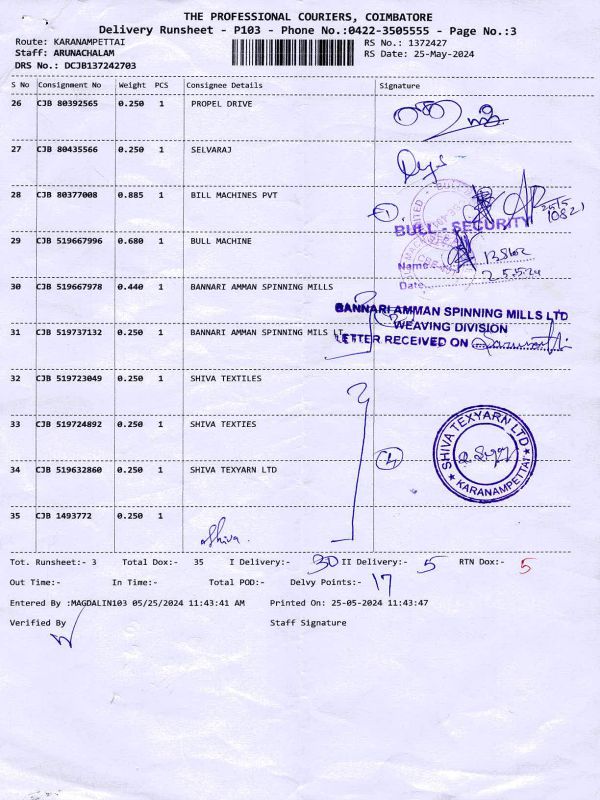 THE PROFESSIONAL COURIERS, COIMBATORE
Delivery Runsheet - P103 - Phone No.:0422-3505555 - Page No.:3
Route: KARANAMPETTAI RS No.: 1372427
Staff: ARUNACHALAM RS Date: 25-May-2024
DRS No.: DCJB137242703
S No Consignment No Weight PCS Consignee Details Signature
26 CJB 80392565 0.250 1 PROPEL DRIVE
27 CJB 80435566 0.250 1 SELVARAJ
28 CJB 80377008 0.885 1 BILL MACHINES PVT
10821
BULL - SECURITY
29 CJB 519667996 0.680 1 BULL MACHINE
Name
Date
30 CJB 519667978 0.440 1 BANNARI AMMAN SPINNING MILLS
BANNARI AMMAN SPINNING MILLS LTD
WEAVING DIVISION
31 CJB 519737132 0.250 1 BANNARI AMMAN SPINNING MILS LT
LETTER RECEIVED ON
32 CJB 519723049 0.250 1 SHIVA TEXTILES
33 CJB 519724892 0.250 1 SHIVA TEXTIES
SHIVA TEXYARN LTD
KARANAMPETTAI
4
34 CJB 519632860 0.250 1 SHIVA TEXYARN LTD
35 CJB 1493772 0.250 1
Shiva
Tot. Runsheet:- 3 Total Dox:- 35 I Delivery:- 30 II Delivery:- 5 RTN Dox:- 5
Out Time:- In Time:- Total POD:- Delvy Points:- 17
Entered By :MAGDALIN103 05/25/2024 11:43:41 AM Printed On: 25-05-2024 11:43:47
Verified By Staff Signature